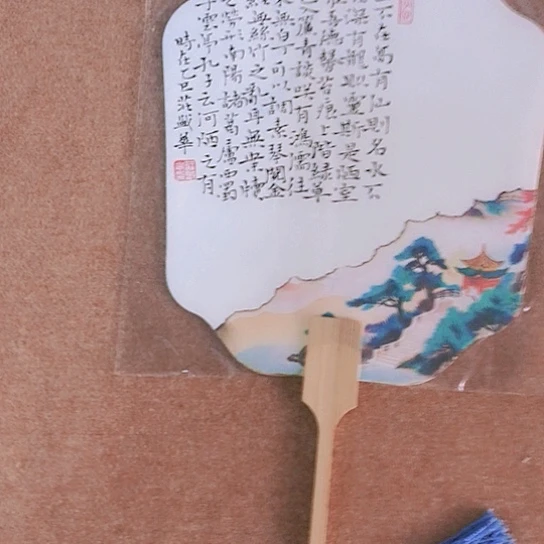 不在高有仙則名水不
深有龍則靈斯是陋室
吾德馨苔痕上階綠草
入簾青談笑有鴻儒往
來無白丁可以調素琴閱金
經無絲竹之亂耳無案牘
之勞形南陽諸葛廬西蜀
子雲亭孔子云何陋之有
時在乙巳莊華